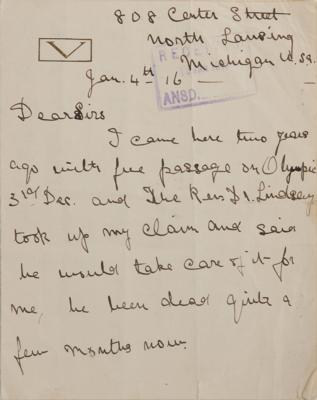 808 Center Street
North Lansing
Michigan U.S.A.
V
REC
ANSD.
Jan. 4th 16
Dear Sirs
I came here two years
ago with free passage on Olympic
3rd Dec. and The Rev. Dr. Lindsay
took up my claim and said
he would take care of it for
me, he been dead quite a
few months now.